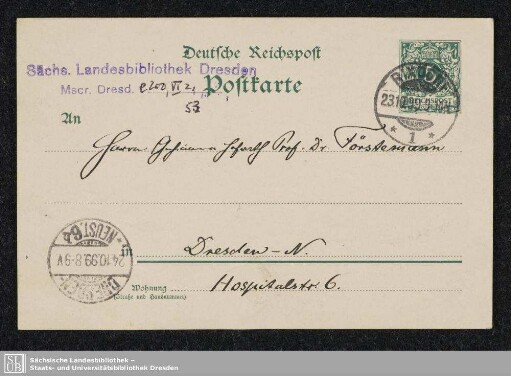 Deutsche Reichspost
Sächs. Landesbibliothek Dresden
Postkarte
Mscr. Dresd. e 200, VI 2,
53
An
23.10.99
REICHSPOST
* 1 *
Herrn Geheimen Hofrath Prof. Dr. Förstemann
NEUST. 64
24.10.99. 8-9 V
DRESDEN
in
Dresden-N.
Wohnung
(Straße und Hausnummer)
Hospitalstr. 6.
SLUB
Sächsische Landesbibliothek –
Staats- und Universitätsbibliothek Dresden